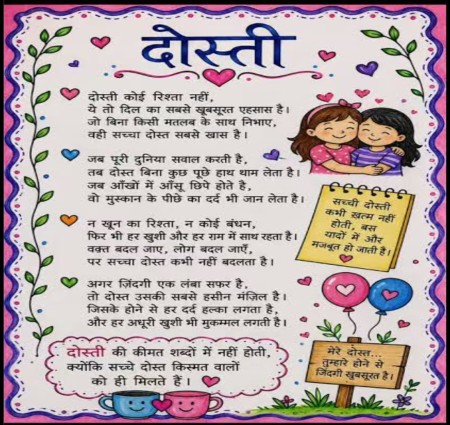 दोस्ती
दोस्ती कोई रिश्ता नहीं,
ये तो दिल का सबसे खूबसूरत एहसास है।
जो बिना किसी मतलब के साथ निभाए,
वही सच्चा दोस्त सबसे खास है।
जब पूरी दुनिया सवाल करती है,
तब दोस्त बिना कुछ पूछे हाथ थाम लेता है।
जब आँखों में आँसू छिपे होते है,
वो मुस्कान के पीछे का दर्द भी जान लेता है।
न खून का रिश्ता, न कोई बंधन,
फिर भी हर खुशी और हर ग़म में साथ रहता है।
वक़्त बदल जाए, लोग बदल जाएँ,
पर सच्चा दोस्त कभी नहीं बदलता है।
अगर ज़िंदगी एक लंबा सफर है,
तो दोस्त उसकी सबसे हसीन मंज़िल है।
जिसके होने से हर दर्द हल्का लगता है,
और हर अधूरी खुशी भी मुकम्मल लगती है।
दोस्ती की कीमत शब्दों में नहीं होती,
क्योंकि सच्चे दोस्त किस्मत वालों
को ही मिलते हैं।
सच्ची दोस्ती
कभी खत्म नहीं
होती, बस
यादों में और
मजबूत हो जाती है।
मेरे दोस्त...
तुम्हारे होने से
जिंदगी खूबसूरत है।